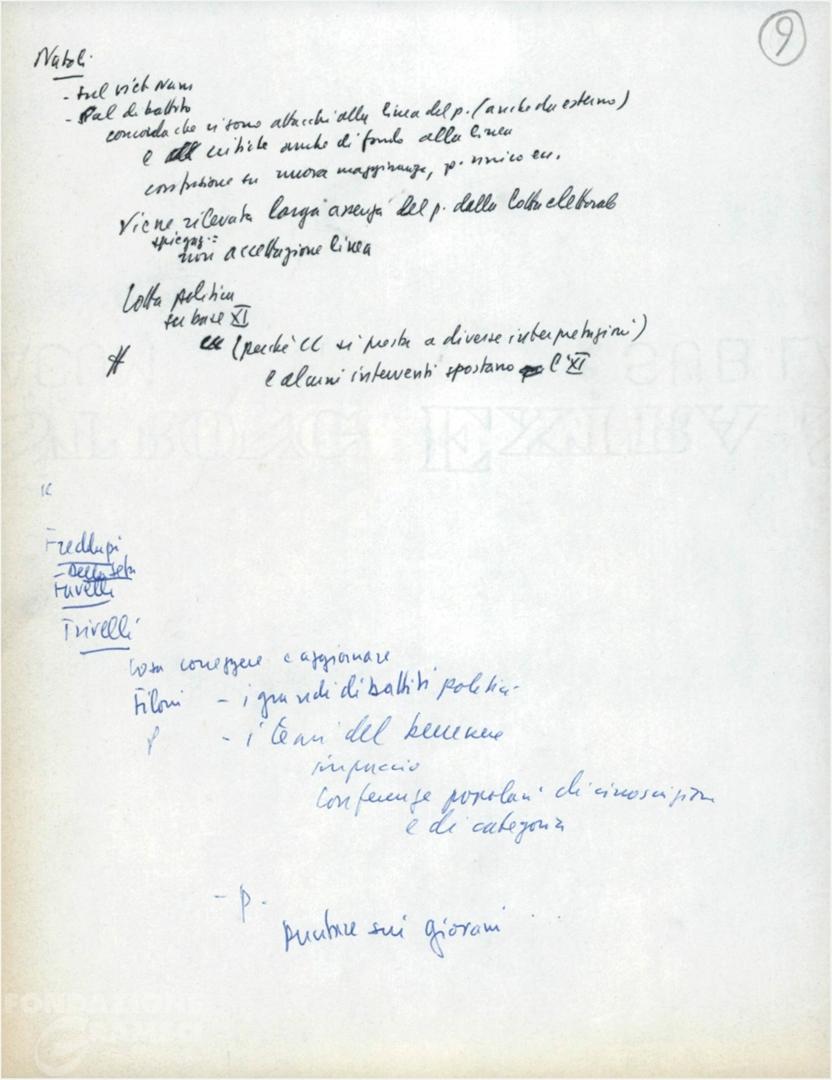 9
Natoli
- sul Viet Nam
- Sul dibattito
concorda che vi sono attacchi alla linea del p. (anche da esterno)
e critiche anche di fondo alla linea
confusione su nuova maggioranza, p. unico ecc.
Viene rilevata larga assenza del p. dalla lotta elettorale
spiegaz:
non accettazione linea
Lotta politica
su base XI
(perché CC si presta a diverse interpretazioni)
#
e alcuni interventi spostano l'XI
Freddupi
Della Seta
Favelli
Trivelli
Cosa correggere e aggiornare
Filoni - i grandi dibattiti politici
- i temi del benessere
Conferenze popolari di circoscrizione
e di categoria
- p.
Puntare sui giovani
FONDAZIONE
GRAMSCI